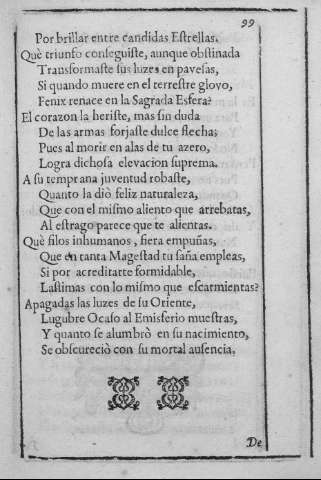 99
Por brillar entre candidas Estrellas.
Què triunfo conseguiste, aunque obstinada
Transformaste sus luzes en pavesas,
Si quando muere en el terrestre glovo,
Fenix renace en la Sagrada Esfera?
El corazon la heriste, mas sin duda
De las armas forjaste dulce flecha;
Pues al morir en alas de tu azero,
Logra dichosa elevacion suprema.
A su temprana juventud robaste,
Quanto la diò feliz naturaleza,
Que con el mismo aliento que arrebatas,
Al estrago parece que te alientas.
Què filos inhumanos, fiera empuñas,
Que en tanta Magestad tu saña empleas,
Si por acreditarte formidable,
Lastimas con lo mismo que escarmientas?
Apagadas las luzes de su Oriente,
Lugubre Ocaso al Emisferio muestras,
Y quanto se alumbrò en su nacimiento,
Se obscureciò con su mortal ausencia.
De